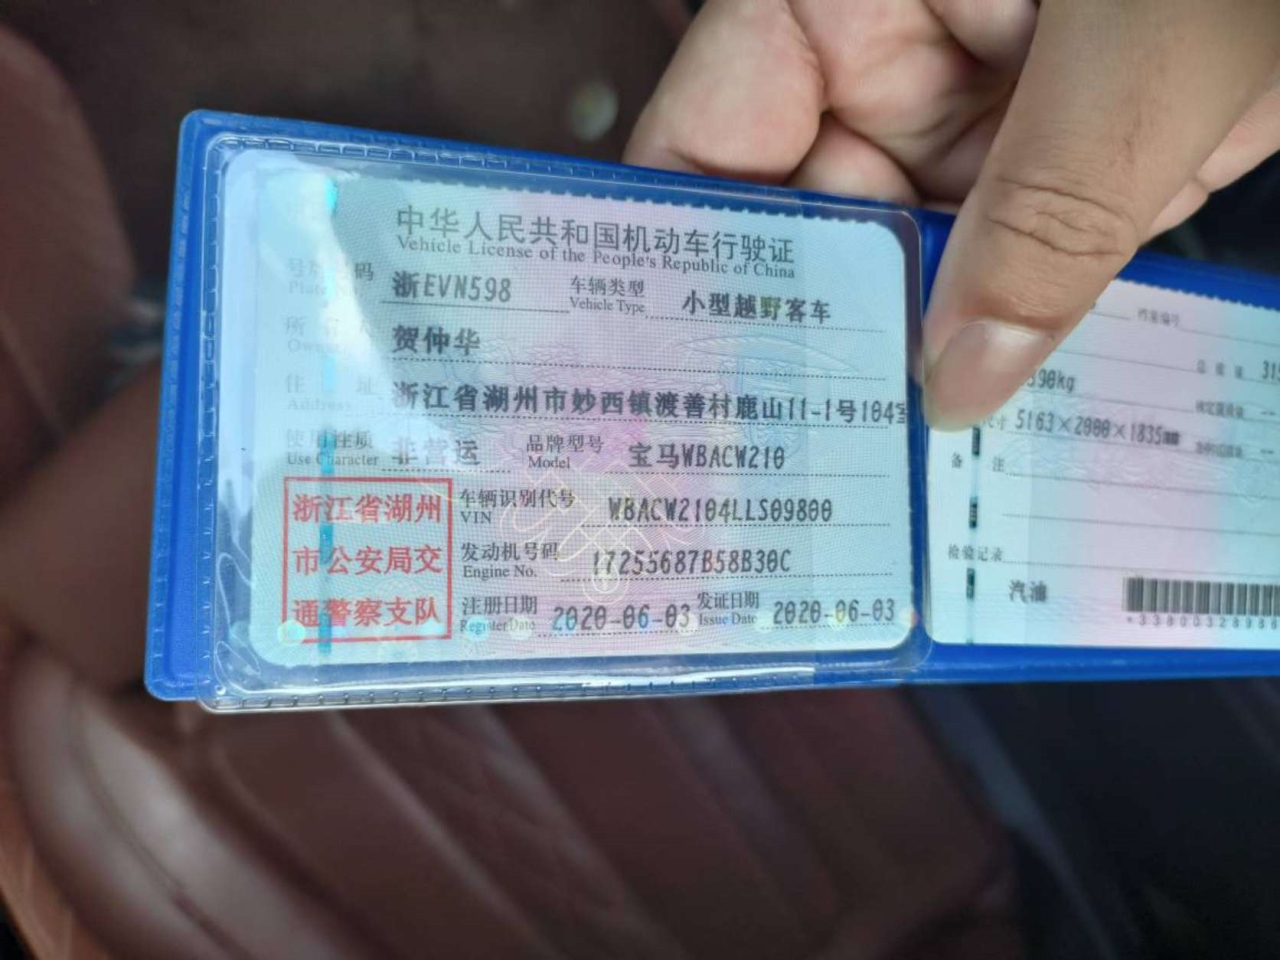 中华人民共和国机动车行驶证
Vehicle License of the People's Republic of China
号牌号码 浙EVN598 车辆类型 小型越野客车
Plate No. Vehicle Type
所有人 贺仲华
Owner
住址 浙江省湖州市妙西镇渡善村鹿山11-1号104室
Address
使用性质 非营运 品牌型号 宝马WBACW210
Use Character Model
浙江省湖州
市公安局交
通警察支队
车辆识别代号 WBACW2104LLS09800
VIN
发动机号码 17255687B58B30C
Engine No.
注册日期 2020-06-03 发证日期 2020-06-03
Register Date Issue Date
档案编号
总质量
90kg
尺寸 5163×2000×1835mm
备注
检验记录
汽油